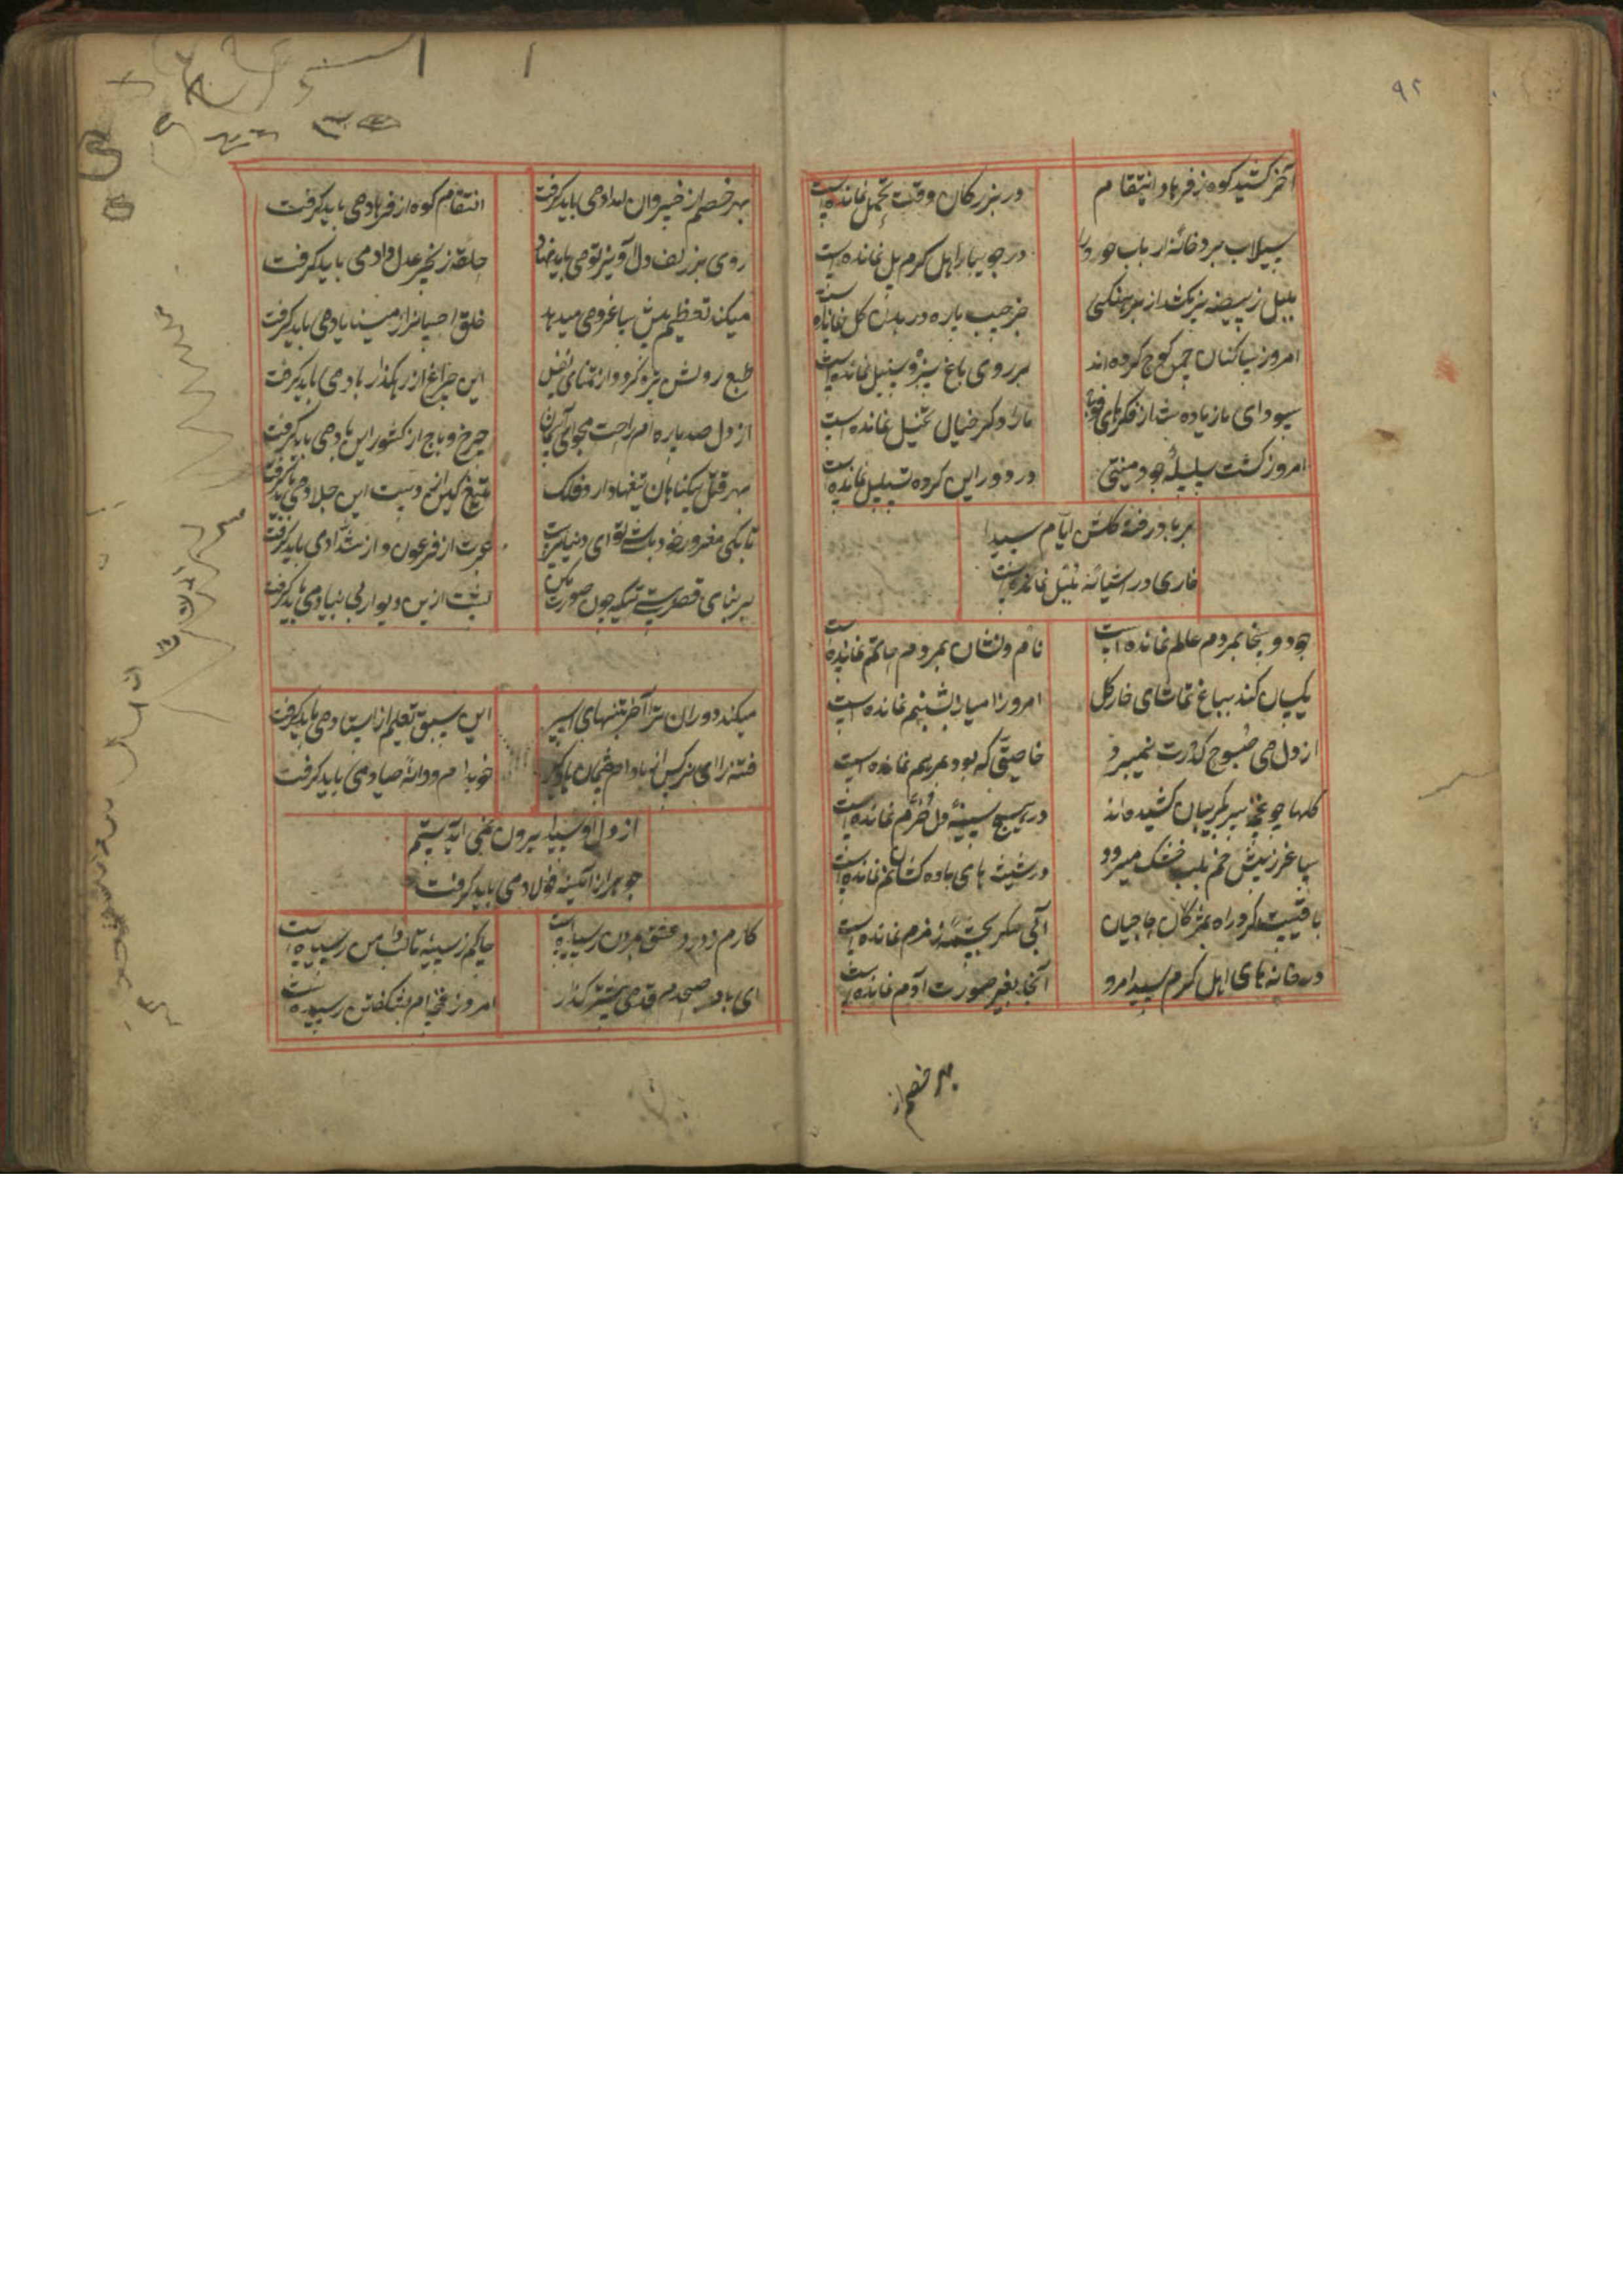 ۹۲
آخر کشید کوه ز فرهاد انتقام
در بزرگان وقت تحمل نمانده است
سیلاب برد خانه ارباب جود را
در جویبار اهل کرم پل نمانده است
بلبل ز بیضه سر نکشد از برهنگی
جز جیب پاره در بدن گل نمانده است
امروز ساکنان چمن کوچ کرده اند
بر روی باغ سبزه و سنبل نمانده است
سودای ما زیاده شد از فکرهای
ما را دگر خیال تخیل نمانده است
امروز گشت سلسله جود منتهی
در دور این کرده تسلسل نمانده است
بر باد رفته گلشن ایام سیدا
خاری در آشیانه بلبل نمانده است
جود و سخا بمردم عالم نمانده است
نام و نشان بمردم حاتم نمانده است
یکسان کند بباغ تماشای خار گل
امروز امتیاز بشبنم نمانده است
از دل می صبوح کدورت نمیبرد
خاصیتی که بود بمریم نمانده است
گلها چو غنچه سر بگریبان کشیده اند
در هیچ سینه دل خرم نمانده است
ساغر ز پیش خم بلب خشک میرود
در شیشه های باده کشان نم نمانده است
با قیست کرد راه بمژگان حاجیان
آبی مگر بچشمه زمزم نمانده است
در خانه های اهل کرم سیدا مرو
آنجا بغیر صورت آدم نمانده است
بهر خصم از
بهر خصم از خسروان امداد می باید گرفت
انتقام کوه از فرهاد می باید گرفت
روی بر زلف دل آویز تو می باید نهاد
حلقه زنجیر عدل و داد می باید گرفت
میکند تعظیم پیش ساغر و می میدهد
خلق احسان از مینا یاد می باید گرفت
طبع روشن تیره گردد از تمنای نفس
این چراغ از رهگذار باد می باید گرفت
از دل صد پاره ام راحت مجو ای آسمان
چرخ و باج از کشور آباد می باید گرفت
بهر قتل بیگناهان تیغها دارد فلک
تیغ کین از دست این جلاد می باید گرفت
تا بکی مغرور خود باشی تو ای دنیاپرست
عبرت از فرعون و از شداد می باید گرفت
بر بنای قصر هستی تکیه چون صورت مکن
پشت ازین دیوار بی بنیاد می باید گرفت
میکند دوران ترا آخر بتنهای اسیر
این سبق تعلیم از استاد می باید گرفت
فتنه را ای نرگس از بادام چشمان یاد گیر
خو بدام و دانه صیاد می باید گرفت
از دل او سیدا بیرون نمی آید ستم
جوهر از آیینه فولاد می باید گرفت
کارم ز درد عشق بمردن رسیده است
چاکم ز سینه تا لب دامن رسیده است
ای باد صبحدم قدمی پیشتر گذار
امروز غنچه ام بشکفتن رسیده است